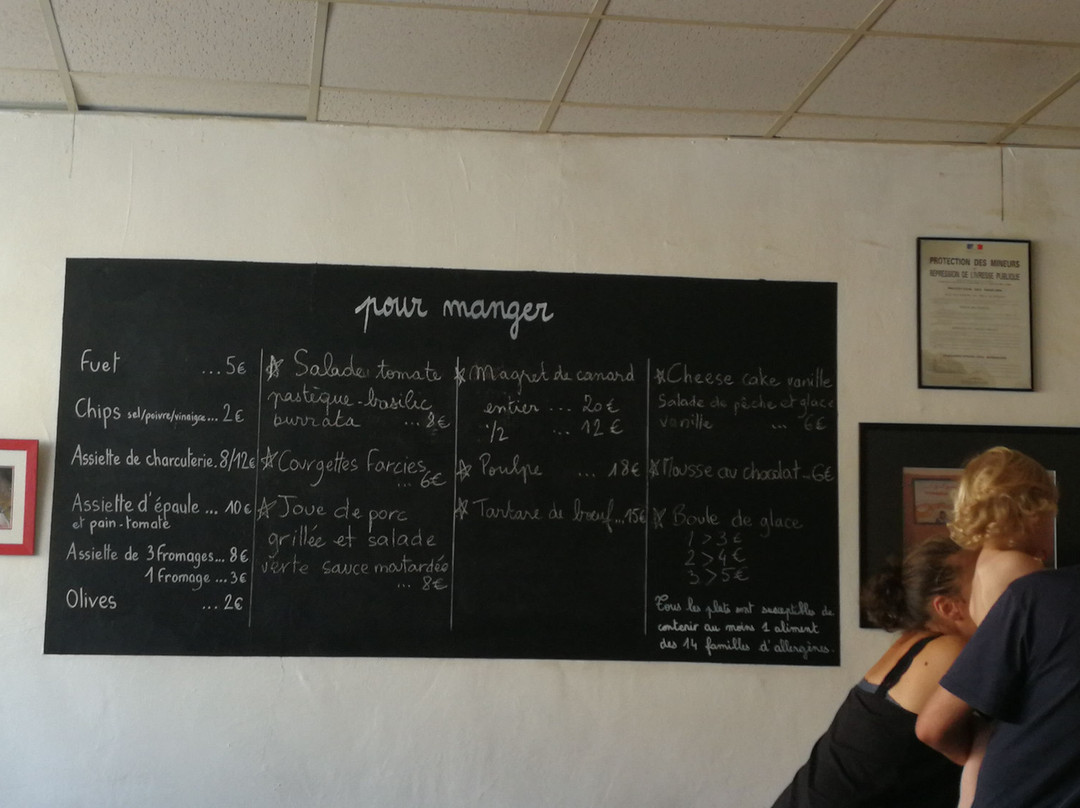 pour manger
Fuet ...5€
Chips sel/poivre/vinaigre... 2€
Assiette de charcuterie. 8/12€
Assiette d'épaule ... 10€
et pain-tomate
Assiette de 3 fromages... 8€
1 fromage ... 3€
Olives ... 2€
Salade tomate
pastèque-basilic
burrata ... 8€
Courgettes Farcies
... 6€
Joue de porc
grillée et salade
verte sauce moutardée
... 8€
Magret de canard
entier ... 20€
1/2 ... 12€
Poulpe ... 18€
Tartare de bœuf...15€
Cheese cake vanille
Salade de pêche et glace
vanille ... 6€
Mousse au chocolat...6€
Boule de glace
1 > 3€
2 > 4€
3 > 5€
Tous les plats sont susceptibles de
contenir au moins 1 aliment
des 14 familles d'allergènes.
PROTECTION DES MINEURS
RÉPRESSION DE L'IVRESSE PUBLIQUE